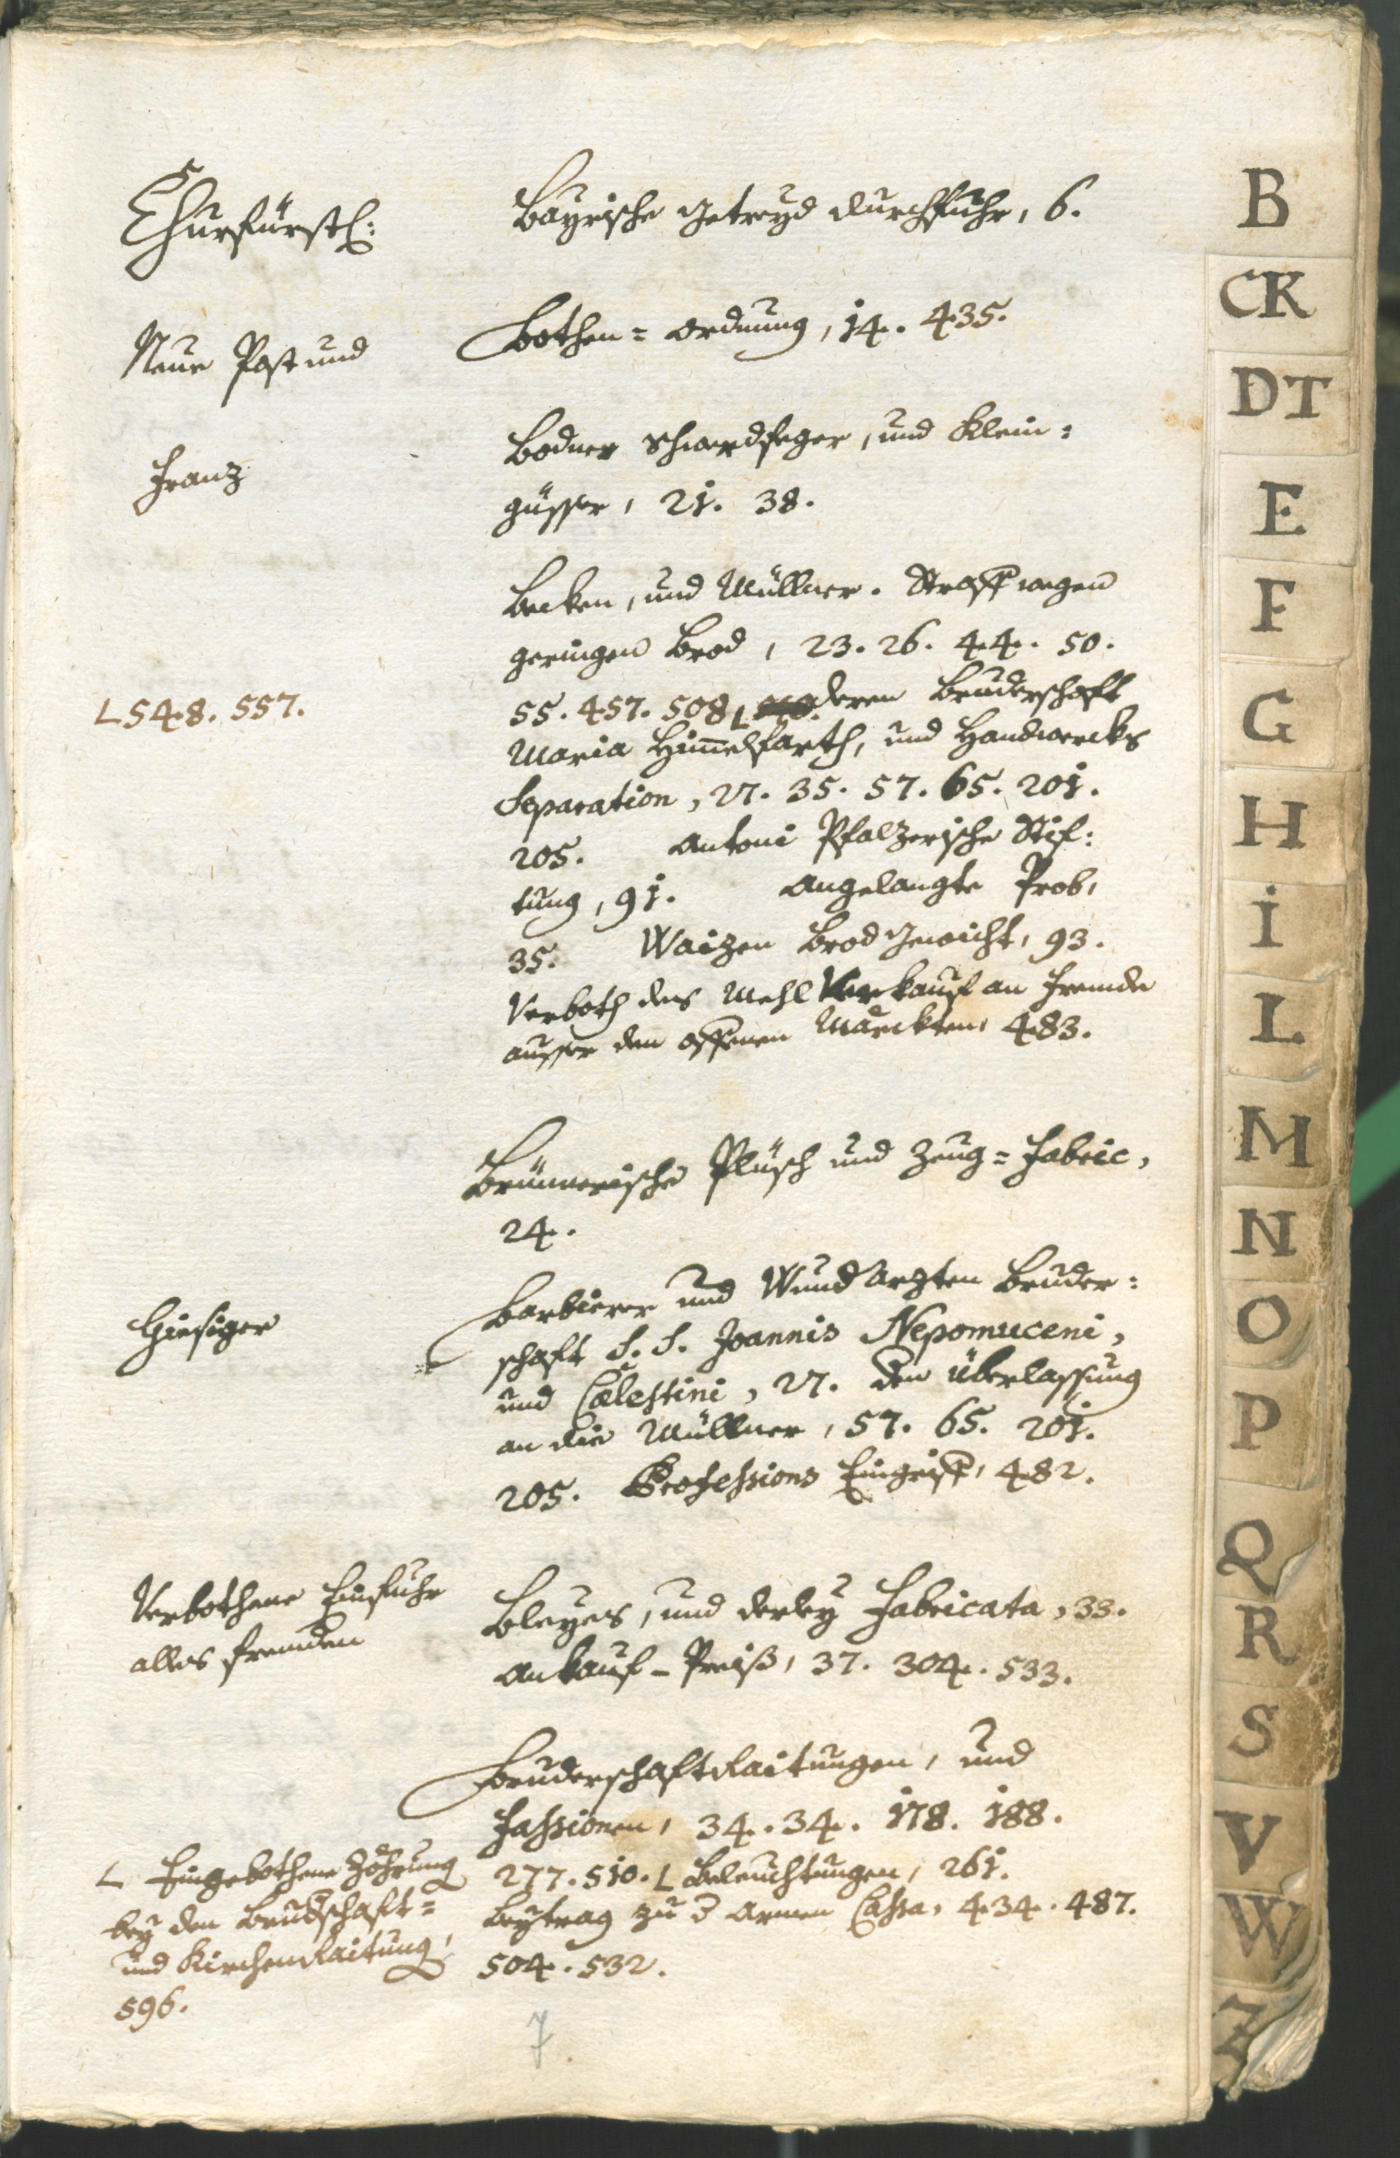 Churfürstl: Bayrische Getreyd durchfuhr, 6.
Neue Post und Bothen= ordnung, 14. 435.
Franz Bodner Schwerdfeger, und Klein=
güsser, 21. 38.
Becken, und Müllner. Straff wegen
geringen Brod, 23. 26. 44. 50.
55. 457. 508 L deren Bruderschaft
L 548. 557.
Maria Himelfarth, und Handwercks
Separation, 27. 35. 57. 65. 201.
205. Antoni Pfalzerische Stif=
tung, 91. Angelangte Prob,
35. Waizen Brod Gewicht, 93.
Verboth des Mehl Verkauf an Fremde
ausser den offenen Märckten, 483.
Brünnerische Plüsch und Zeug= Fabric,
24.
Hiesiger Barbierer und Wundärzten Bruder=
schaft S. S. Joannis Nepomuceni,
und Cælestini, 27. den Überlassung
an die Müllner, 57. 65. 201.
205. Professions Eingriff, 482.
Verbothene Einfuhr
alles fremden
Bleyes, und derley Fabricata, 33.
Ankauf - Preiß, 37. 304. 533.
Bruderschaft Raitungen, und
Fassionen, 34. 34. 178. 188.
277. 510. L Beleuchtungen, 261.
Beytrag zu d Armen Cassa, 434. 487.
504. 532.
L Eingebothene Zöhrung
bey den Brudschaft=
und Kirchen Raitung,
596.
7
B
CK
DT
E
F
G
H
I
L
M
N
O
P
Q
R
S
V
W
Z